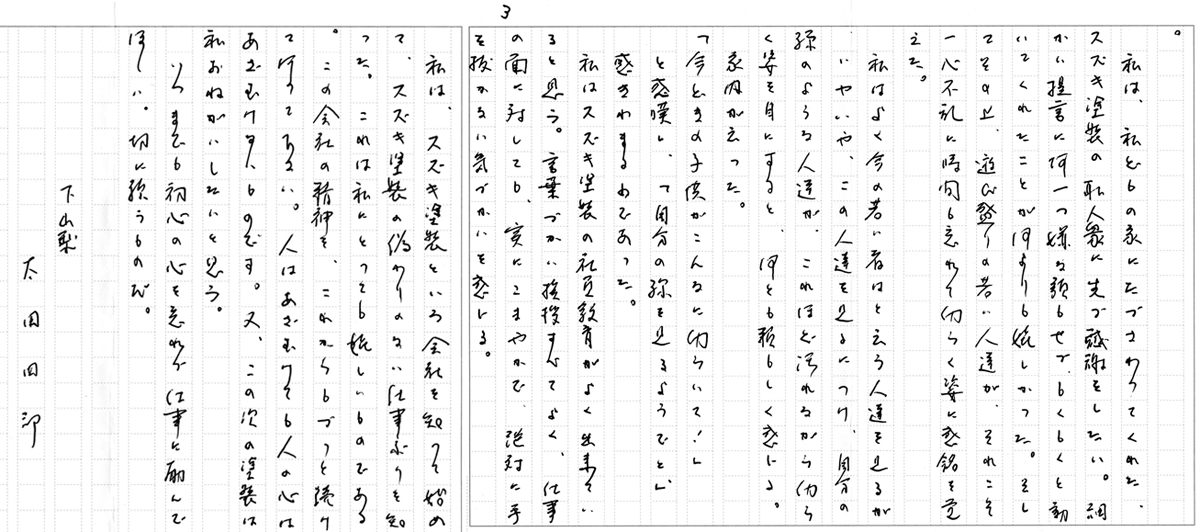 3
。
私は、私どもの家にたづさわってくれた、
スズキ塗装の職人衆に先づ感謝をしたい。細
かい提言に何一つ嫌な顔もせづ、もくもくと動
いてくれたことが何よりも嬉しかった。そし
てその上、遊び盛りの若い人達が、それこそ
一心不乱に時間も忘れて仂らく姿に感銘を覚
えた。
私はよく今の若い者はと云う人達を見るが
、いやいや、この人達を見るにつけ、自分の
孫のような人達が、これほど汚れながら仂ら
く姿を目にすると、何とも頼もしく感じる。
家内が云った。
「今どきの子供がこんなに仂らいて!」
と感嘆し、「自分の孫を見るようでと」、
感きわまるのであった。
私はスズキ塗装の社員教育がよく出来てい
ると思う。言葉づかい挨拶すべてよく、仕事
の面に対しても、実にこまやかで、絶対に手
を抜かない気づかいを感じる。
私は、スズキ塗装という会社を知って始め
て、スズキ塗装の偽わりのない仕事ぶりを知
った。これは私にとっても嬉しいものである
。この会社の精神を、これからもづっと続け
て行ってほしい。人はあざむけても人の心は
あざむけないものです。又、この次の塗装は
私おねがいしたいと思う。
いつまでも初心の心を忘れづ仕事に励んで
ほしい。切に願うものだ。
下山梨
太田国卯